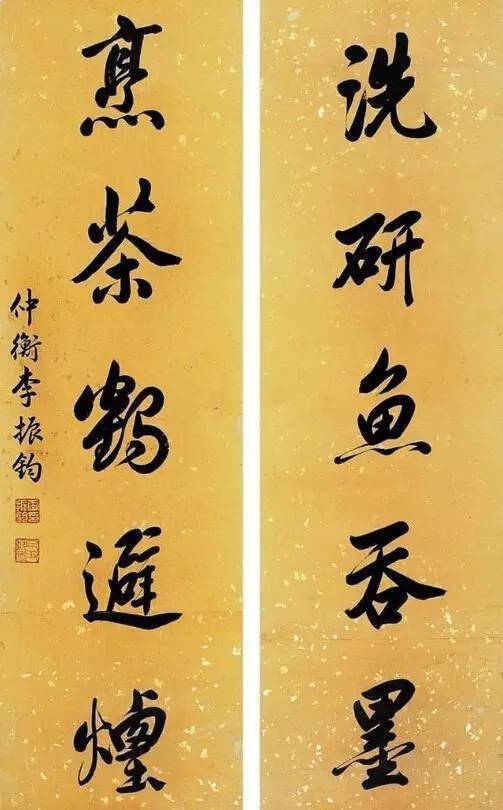 洗研魚吞墨
烹茶鶴避煙
仲衡李振鈞